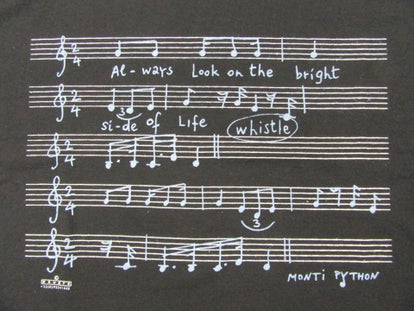 2 4
Al-ways Look on the bright
2 4
3
si-de of Life whistle
2 4
2 4
3
2 4
MONTI PYTHON